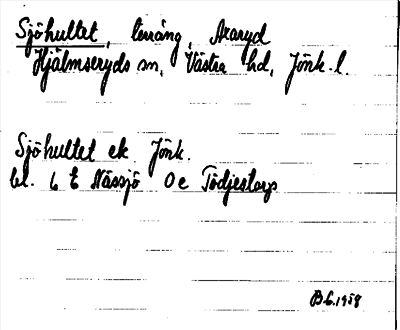 Sjöhultet, terräng, Araryd
Hjälmseryds sn, Västra hd, Jönk. l.
Sjöhultet ek Jönk.
bl. 6 E Nässjö 0c Tödjestorp
B.G. 1958